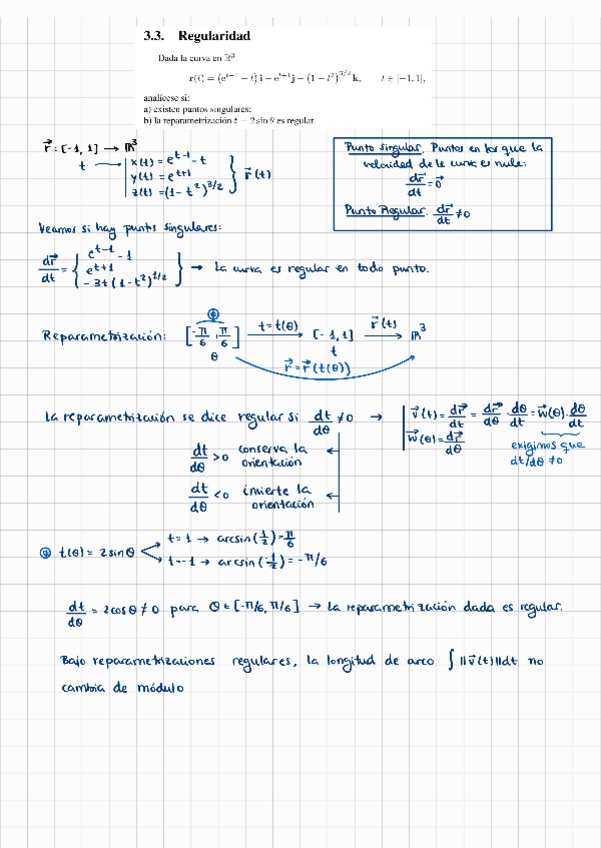 3.3. Regularidad
Dada la curva en ℝ³
r(t) = (e^{t−1} − t) i − e^{t+1} j − (1 − t²)^{3/2} k, t ∈ [−1, 1],
analícese si:
a) existen puntos singulares;
b) la reparametrización t = 2 sin θ es regular.
r⃗ : [-1, 1] → ℝ³
t → | x(t) = e^{t-1} - t
y(t) = e^{t+1}
z(t) = (1 - t²)^{3/2} } r⃗(t)
Punto singular. Puntos en los que la
velocidad de la curva es nula:
dr⃗/dt = 0⃗
Punto Regular. dr⃗/dt ≠ 0
Veamos si hay puntos singulares:
dr⃗/dt = { e^{t-1} - 1
e^{t+1}
- 3t (1 - t²)^{1/2} } → La curva es regular en todo punto.
Reparametrización: [-π/6, π/6] t = t(θ) → [-1, 1] r⃗(t) → ℝ³
θ t
r⃗ = r⃗(t(θ))
La reparametrización se dice regular si dt/dθ ≠ 0 → | v⃗(t) = dr⃗/dt = dr⃗/dθ · dθ/dt = w⃗(θ) · dθ/dt
w⃗(θ) = dr⃗/dθ
exigimos que
dt/dθ ≠ 0
dt/dθ > 0 conserva la
orientación
dt/dθ < 0 invierte la
orientación
t(θ) = 2 sin θ
t = 1 → arcsin(1/2) = π/6
t = -1 → arcsin(-1/2) = -π/6
dt/dθ = 2cos θ ≠ 0 para θ ∈ [-π/6, π/6] → La reparametrización dada es regular.
Bajo reparametrizaciones regulares, la longitud de arco ∫ ||v⃗(t)|| dt no
cambia de módulo